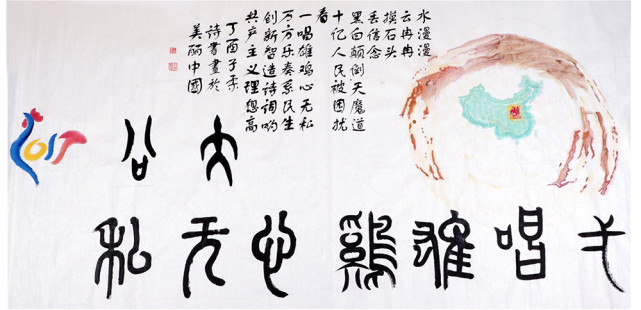 水漫漫
云冉冉
摸石头
丢信念
黑白颠倒天魔道
十亿人民被困扰
看
一唱雄鸡心无私
万方乐奏系民生
创新智造诗词
共产主义理想高
丁酉子
诗書畫於
美丽中國
大公
唱雄鷄心无私
2017